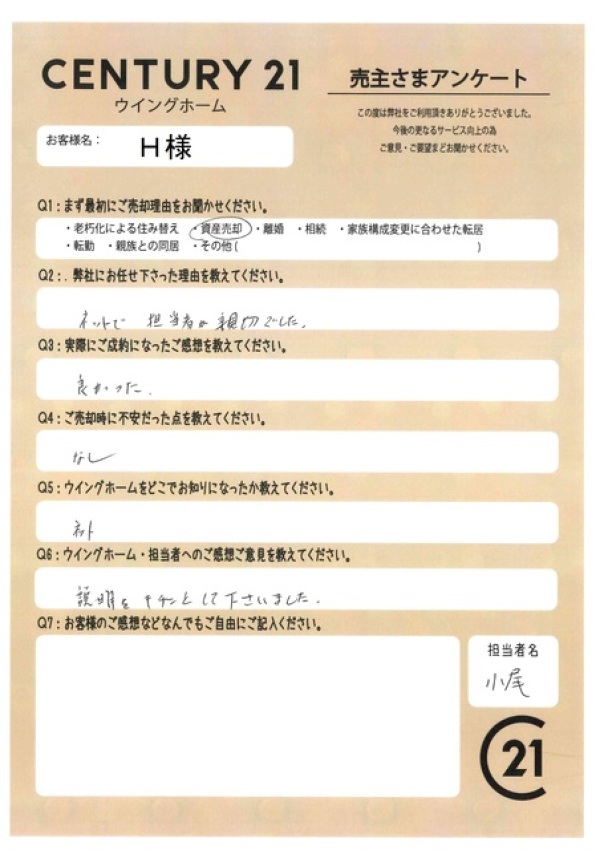 CENTURY 21
ウイングホーム
売主さまアンケート
この度は弊社をご利用頂きありがとうございました。
今後の更なるサービス向上の為
ご意見・ご要望まどお聞かせください。
お客様名：
H様
Q1：まず最初にご売却理由をお聞かせください。
・老朽化による住み替え ・資産売却 ・離婚 ・相続 ・家族構成変更に合わせた転居
・転勤 ・親族との同居 ・その他( )
Q2：. 弊社にお任せ下さった理由を教えてください。
ネットで 担当者が親切でした.
Q3：実際にご成約になったご感想を教えてください。
良かった.
Q4：ご売却時に不安だった点を教えてください。
なし
Q5：ウイングホームをどこでお知りになったか教えてください。
ネット
Q6：ウイングホーム・担当者へのご感想ご意見を教えてください。
説明をキチンとして下さいました.
Q7：お客様のご感想などなんでもご自由にご記入ください。
担当者名
小尾
C21